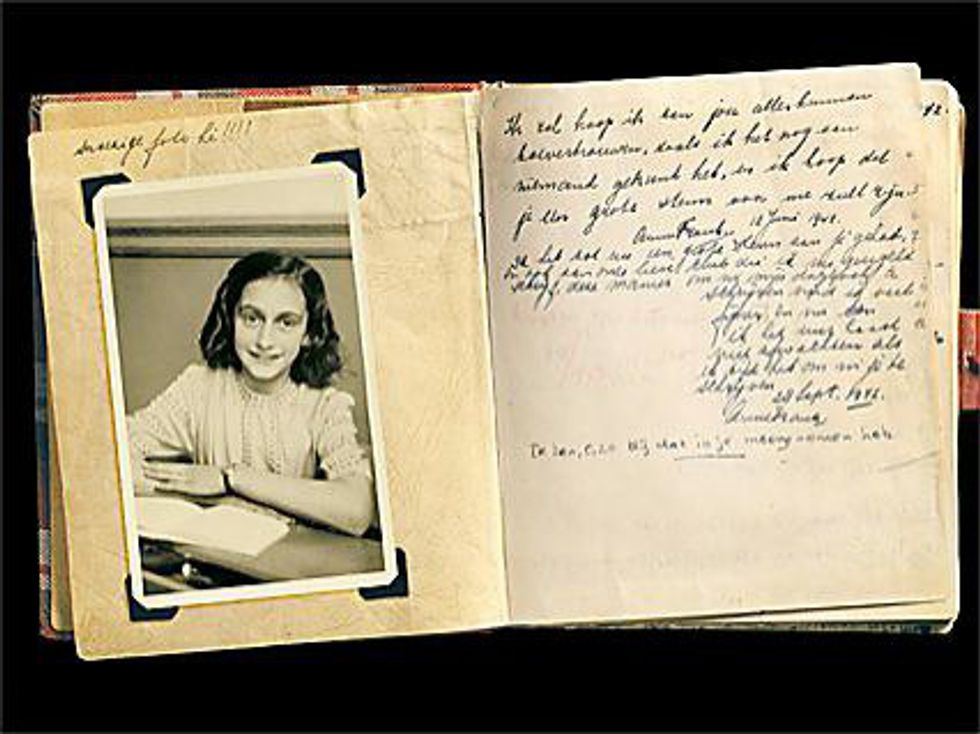 snoezige foto hè!!!!
42.
Ik zal hoop ik aan jou alles kunnen
toevertrouwen, zoals ik het nog aan
niemand gekund heb, en ik hoop dat
je een grote steun voor me zult zijn.
Anne Frank. 12 Juni 1942.
Ik heb tot nu een grote steun aan je gehad,
en ook aan onze lieve club die ik nu geregeld
schrijf, deze manier om in mijn dagboek te
schrijven vind ik veel
fijner en nu kan
ik het uur haast
niet afwachten als
ik tijd heb om in je te
schrijven
28 Sept. 1942.
Anne Frank
Ik ben, O, zo blij dat ik je meegenomen heb